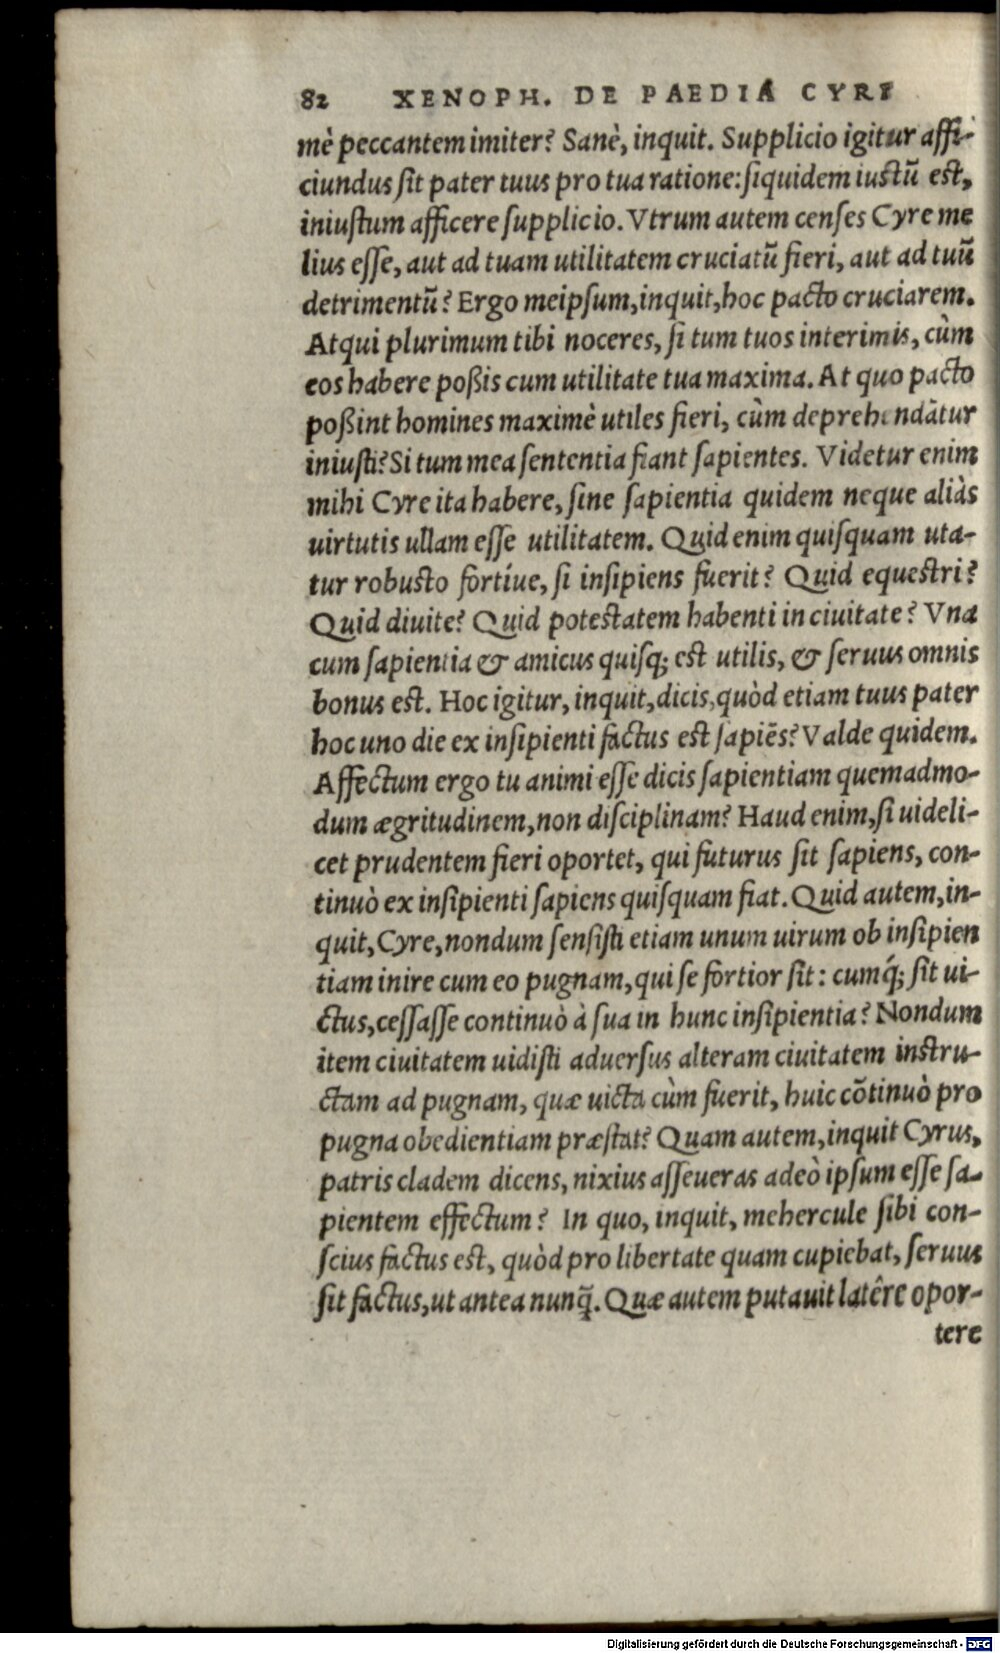 82 XENOPH. DE PAEDIA CYRI
mè peccantem imiter? Sanè, inquit. Supplicio igitur affi-
ciundus sit pater tuus pro tua ratione: siquidem iustũ est,
iniustum afficere supplicio. Vtrum autem censes Cyre me
lius esse, aut ad tuam utilitatem cruciatũ fieri, aut ad tuũ
detrimentũ? Ergo meipsum, inquit, hoc pacto cruciarem.
Atqui plurimum tibi noceres, si tum tuos interimis, cùm
eos habere poßis cum utilitate tua maxima. At quo pacto
poßint homines maximè utiles fieri, cùm deprehendãtur
iniusti? Si tum mea sententia fiant sapientes. Videtur enim
mihi Cyre ita habere, sine sapientia quidem neque aliàs
uirtutis ullam esse utilitatem. Quid enim quisquam uta-
tur robusto fortíue, si insipiens fuerit? Quid equestri?
Quid diuite? Quid potestatem habenti in ciuitate? Vna
cum sapientia & amicus quisq; est utilis, & seruus omnis
bonus est. Hoc igitur, inquit, dicis, quòd etiam tuus pater
hoc uno die ex insipienti factus est sapiẽs? Valde quidem.
Affectum ergo tu animi esse dicis sapientiam quemadmo-
dum ægritudinem, non disciplinam? Haud enim, si uideli-
cet prudentem fieri oportet, qui futurus sit sapiens, con-
tinuò ex insipienti sapiens quisquam fiat. Quid autem, in-
quit, Cyre, nondum sensisti etiam unum uirum ob insipien
tiam inire cum eo pugnam, qui se fortior sit: cumq́; sit ui-
ctus, cessasse continuò à sua in hunc insipientia? Nondum
item ciuitatem uidisti aduersus alteram ciuitatem instru-
ctam ad pugnam, quæ uicta cùm fuerit, huic cõtinuò pro
pugna obedientiam præstat? Quam autem, inquit Cyrus,
patris cladem dicens, nixius asseueras adeò ipsum esse sa-
pientem effectum? In quo, inquit, mehercule sibi con-
scius factus est, quòd pro libertate quam cupiebat, seruus
sit factus, ut antea nunq̃. Quæ autem putauit latêre opor-
tere
Digitalisierung gefördert durch die Deutsche Forschungsgemeinschaft - DFG